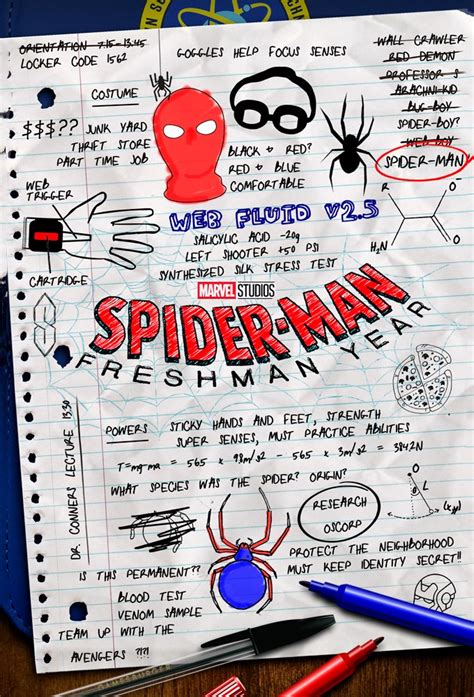 ORIENTATION 7.15-13.45
LOCKER CODE 1562
GOGGLES HELP FOCUS SENSES
WALL CRAWLER
RED DEMON
PROFESSOR S
ARACHNI-KID
BUG-BOY
SPIDER-BOY?
WEB-BOY
SPIDER-MAN
COSTUME
$$$??
JUNK YARD
THRIFT STORE
PART TIME JOB
BLACK + RED?
RED + BLUE
COMFORTABLE
WEB
TRIGGER
CARTRIDGE
WEB FLUID V2.5
SALICYLIC ACID -20g
LEFT SHOOTER +50 PSI
SYNTHESIZED SILK STRESS TEST
R
O
H₂N
O
MARVEL STUDIOS
SPIDER-MAN
FRESHMAN YEAR
POWERS
STICKY HANDS AND FEET, STRENGTH
SUPER SENSES, MUST PRACTICE ABILITIES
WHAT SPECIES WAS THE SPIDER? ORIGIN?
DR CONNERS LECTURE 13.30
RESEARCH
OSCORP
O
L
PROTECT THE NEIGHBORHOOD
MUST KEEP IDENTITY SECRET!!
IS THIS PERMANENT??
BLOOD TEST
VENOM SAMPLE
TEAM UP WITH THE
AVENGERS ?!?!